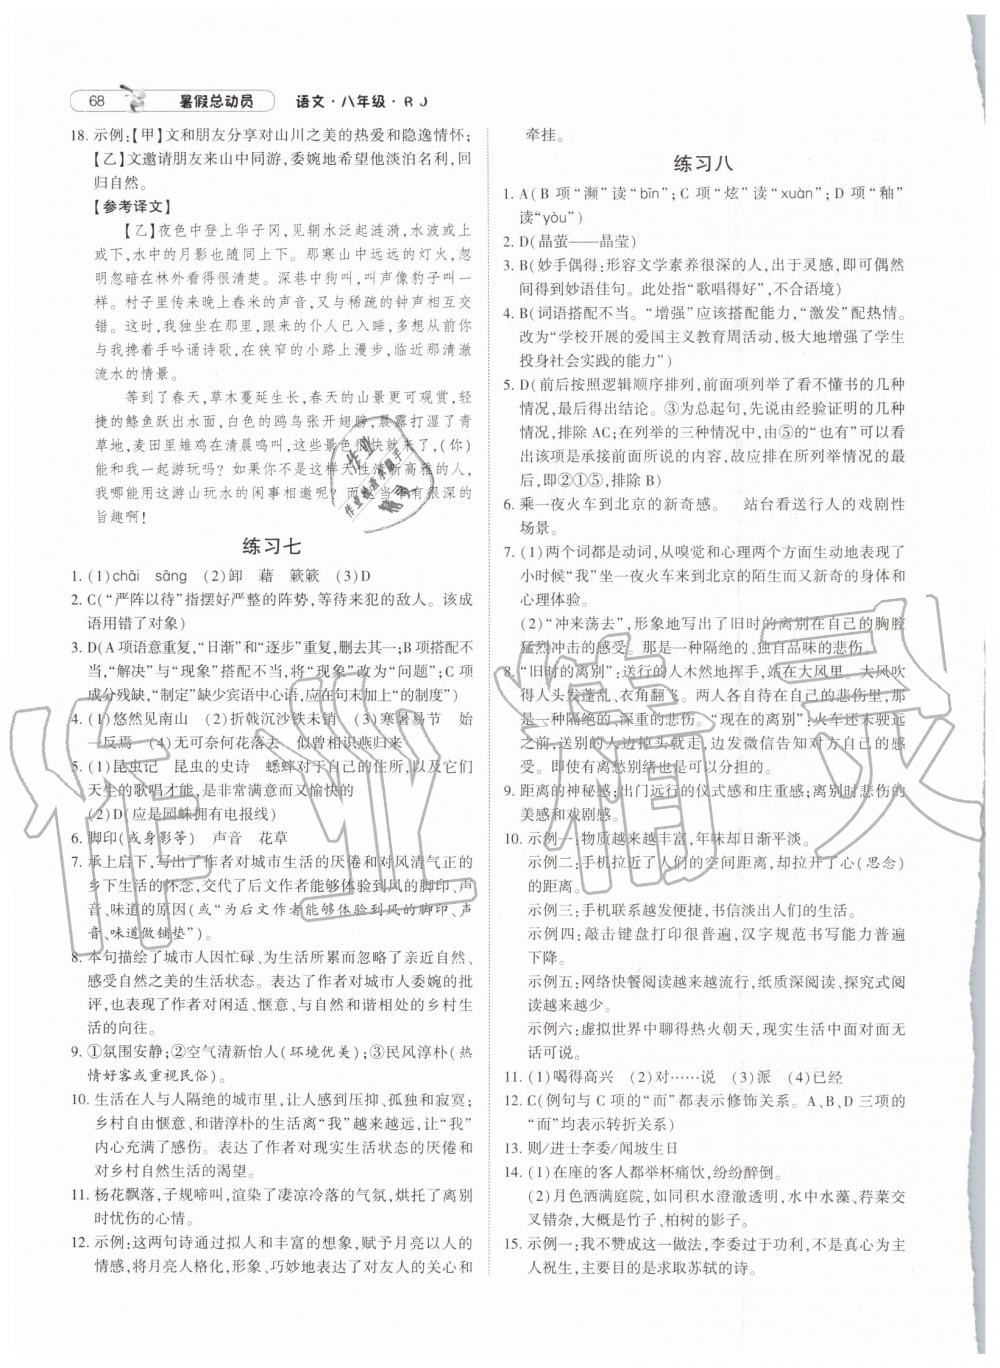 68 暑假总动员 语文·八年级·RJ
18. 示例:【甲】文和朋友分享对山川之美的热爱和隐逸情怀;
【乙】文邀请朋友来山中同游,委婉地希望他淡泊名利,回
归自然。
【参考译文】
【乙】夜色中登上华子冈,见辋水泛起涟漪,水波或上
或下,水中的月影也随同上下。那寒山中远远的灯火,忽
明忽暗在林外看得很清楚。深巷中狗叫,叫声像豹子叫一
样。村子里传来晚上舂米的声音,又与稀疏的钟声相互交
错。这时,我独坐在那里,跟来的仆人已入睡,多想从前你
与我搀着手吟诵诗歌,在狭窄的小路上漫步,临近那清澈
流水的情景。
等到了春天,草木蔓延生长,春天的山景更可观赏,轻
捷的鲦鱼跃出水面,白色的鸥鸟张开翅膀,晨露打湿了青
草地,麦田里雉鸡在清晨鸣叫,这些景色很快就来了,(你)
能和我一起游玩吗?如果你不是这样天性清新高雅的人,
我哪能用这游山玩水的闲事相邀呢!而这中间有很深的
旨趣啊!
练习七
1. (1)chāi sāng (2)卸 藉 簌簌 (3)D
2. C(“严阵以待”指摆好严整的阵势,等待来犯的敌人。该成
语用错了对象)
3. D(A项语意重复,“日渐”和“逐步”重复,删去其一;B项搭配不
当,“解决”与“现象”搭配不当,将“现象”改为“问题”;C项
成分残缺,“制定”缺少宾语中心语,应在句末加上“的制度”)
4. (1)悠然见南山 (2)折戟沉沙铁未销 (3)寒暑易节 始
一反焉 (4)无可奈何花落去 似曾相识燕归来
5. (1)昆虫记 昆虫的史诗 蟋蟀对于自己的住所,以及它们
天生的歌唱才能,是非常满意而又愉快的
(2)D(应是园蛛拥有电报线)
6. 脚印(或身影等) 声音 花草
7. 承上启下,写出了作者对城市生活的厌倦和对风清气正的
乡下生活的怀念,交代了后文作者能够体验到风的脚印、声
音、味道的原因(或“为后文作者能够体验到风的脚印、声
音、味道做铺垫”)。
8. 本句描绘了城市人因忙碌、为生活所累而忽略了亲近自然、
感受自然之美的生活状态。表达了作者对城市人委婉的批
评,也表现了作者对闲适、惬意、与自然和谐相处的乡村生
活的向往。
9. ①氛围安静;②空气清新怡人(环境优美);③民风淳朴(热
情好客或重视民俗)。
10. 生活在人与人隔绝的城市里,让人感到压抑、孤独和寂寞;
乡村自由惬意、和谐淳朴的生活离“我”越来越远,让“我”
内心充满了感伤。表达了作者对城市生活状态的厌倦和
对乡村自然生活的渴望。
11. 杨花飘落,子规啼叫,渲染了凄凉冷落的气氛,烘托了离别
时忧伤的心情。
12. 示例:这两句诗通过拟人和丰富的想象,赋予月亮以人的
情感,将月亮人格化,形象、巧妙地表达了对友人的关心和
牵挂。
练习八
1. A(B项“濒”读“bīn”;C项“炫”读“xuàn”;D项“釉”
读“yòu”)
2. D(晶萤——晶莹)
3. B(妙手偶得:形容文学素养很深的人,出于灵感,即可偶然
间得到妙语佳句。此处指“歌唱得好”,不合语境)
4. B(词语搭配不当。“增强”应该搭配能力,“激发”配热情。
改为“学校开展的爱国主义教育周活动,极大地增强了学生
投身社会实践的能力”)
5. D(前后按照逻辑顺序排列,前面说明了看不懂书的几种
情况,最后得出结论。③为总起句,先说由经验证明的几种
情况,排除AC;在列举的三种情况中,由⑤的“也有”可以看
出该项是承接前面所说的内容,故应排在所列举情况的最
后,即②①⑤,排除B)
6. 乘一夜火车到北京的新奇感。 站台看送行人的戏剧性
场景。
7. (1)两个词都是动词,从嗅觉和心理两个方面生动地表现了
小时候“我”坐一夜火车来到北京的陌生而又新奇的身体和
心理体验。
(2)“冲来荡去”,形象地写出了旧时的离别在自己的胸腔
猛烈冲击的感受。那是一种隔绝的、独自品味的悲伤。
8. “旧时的离别”:送行的人木然地挥手,站在大风里。大风吹
得人头发蓬乱、衣角翻飞。两人各自待在自己的悲伤里,那
是一种隔绝的、深重的悲伤。“现在的离别”:火车还未驶远
之前,送别的人边掉头就走,边发微信告知对方自己的感
受。即使有离愁别绪也是可以分担的。
9. 距离的神秘感;出门远行的仪式感和庄重感;离别时悲伤的
美感和戏剧感。
10. 示例一:物质越来越丰富,年味却日渐平淡。
示例二:手机拉近了人们的空间距离,却拉开了心(思念)
的距离。
示例三:手机联系越发便捷,书信淡出人们的生活。
示例四:敲击键盘打印很普遍,汉字规范书写能力普遍
下降。
示例五:网络快餐阅读越来越流行,纸质深阅读、探究式阅
读越来越少。
示例六:虚拟世界中聊得热火朝天,现实生活中面对面无
话可说。
11. (1)喝得高兴 (2)对……说 (3)派 (4)已经
12. C(例句与C项的“而”都表示修饰关系。A、B、D三项的
“而”均表示转折关系)
13. 则/进士李委/闻坡生日
14. (1)在座的客人都举杯痛饮,纷纷醉倒。
(2)月色洒满庭院,如同积水澄澈透明,水中水藻、荇菜交
叉错杂,大概是竹子、柏树的影子。
15. 示例一:我不赞成这一做法,李委过于功利,不是真心为主
人祝生,主要目的是求取苏轼的诗。
作业精灵